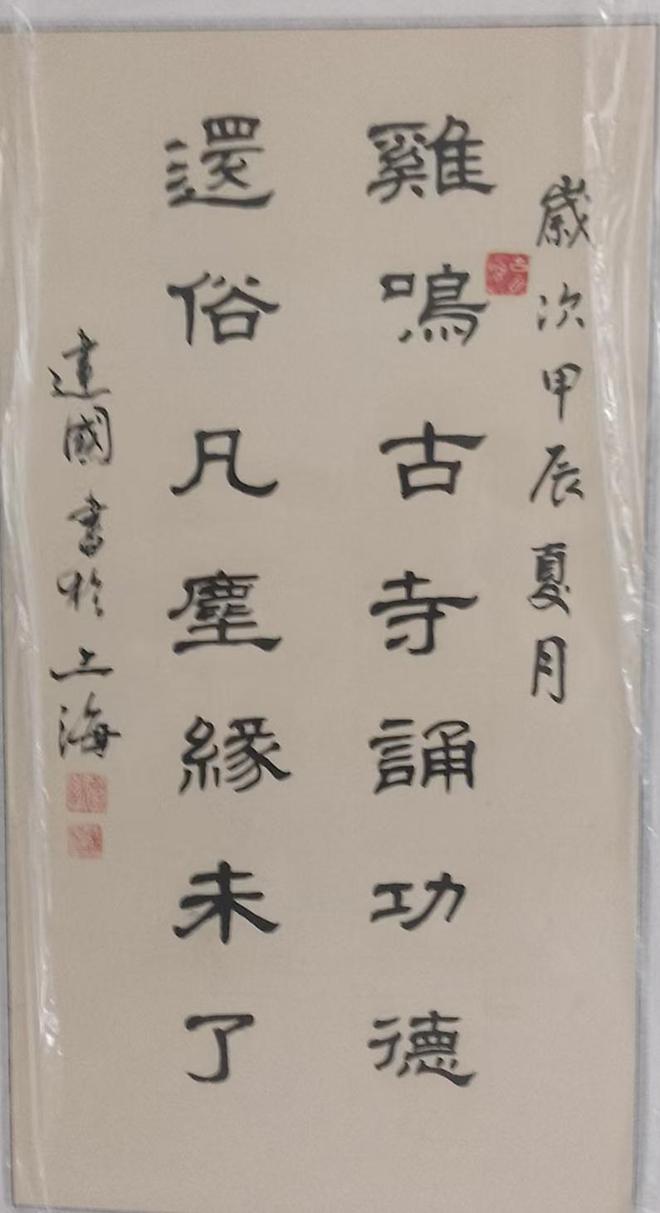 歲次甲辰夏月
雞鳴古寺誦功德
還俗凡塵緣未了
建國書於上海